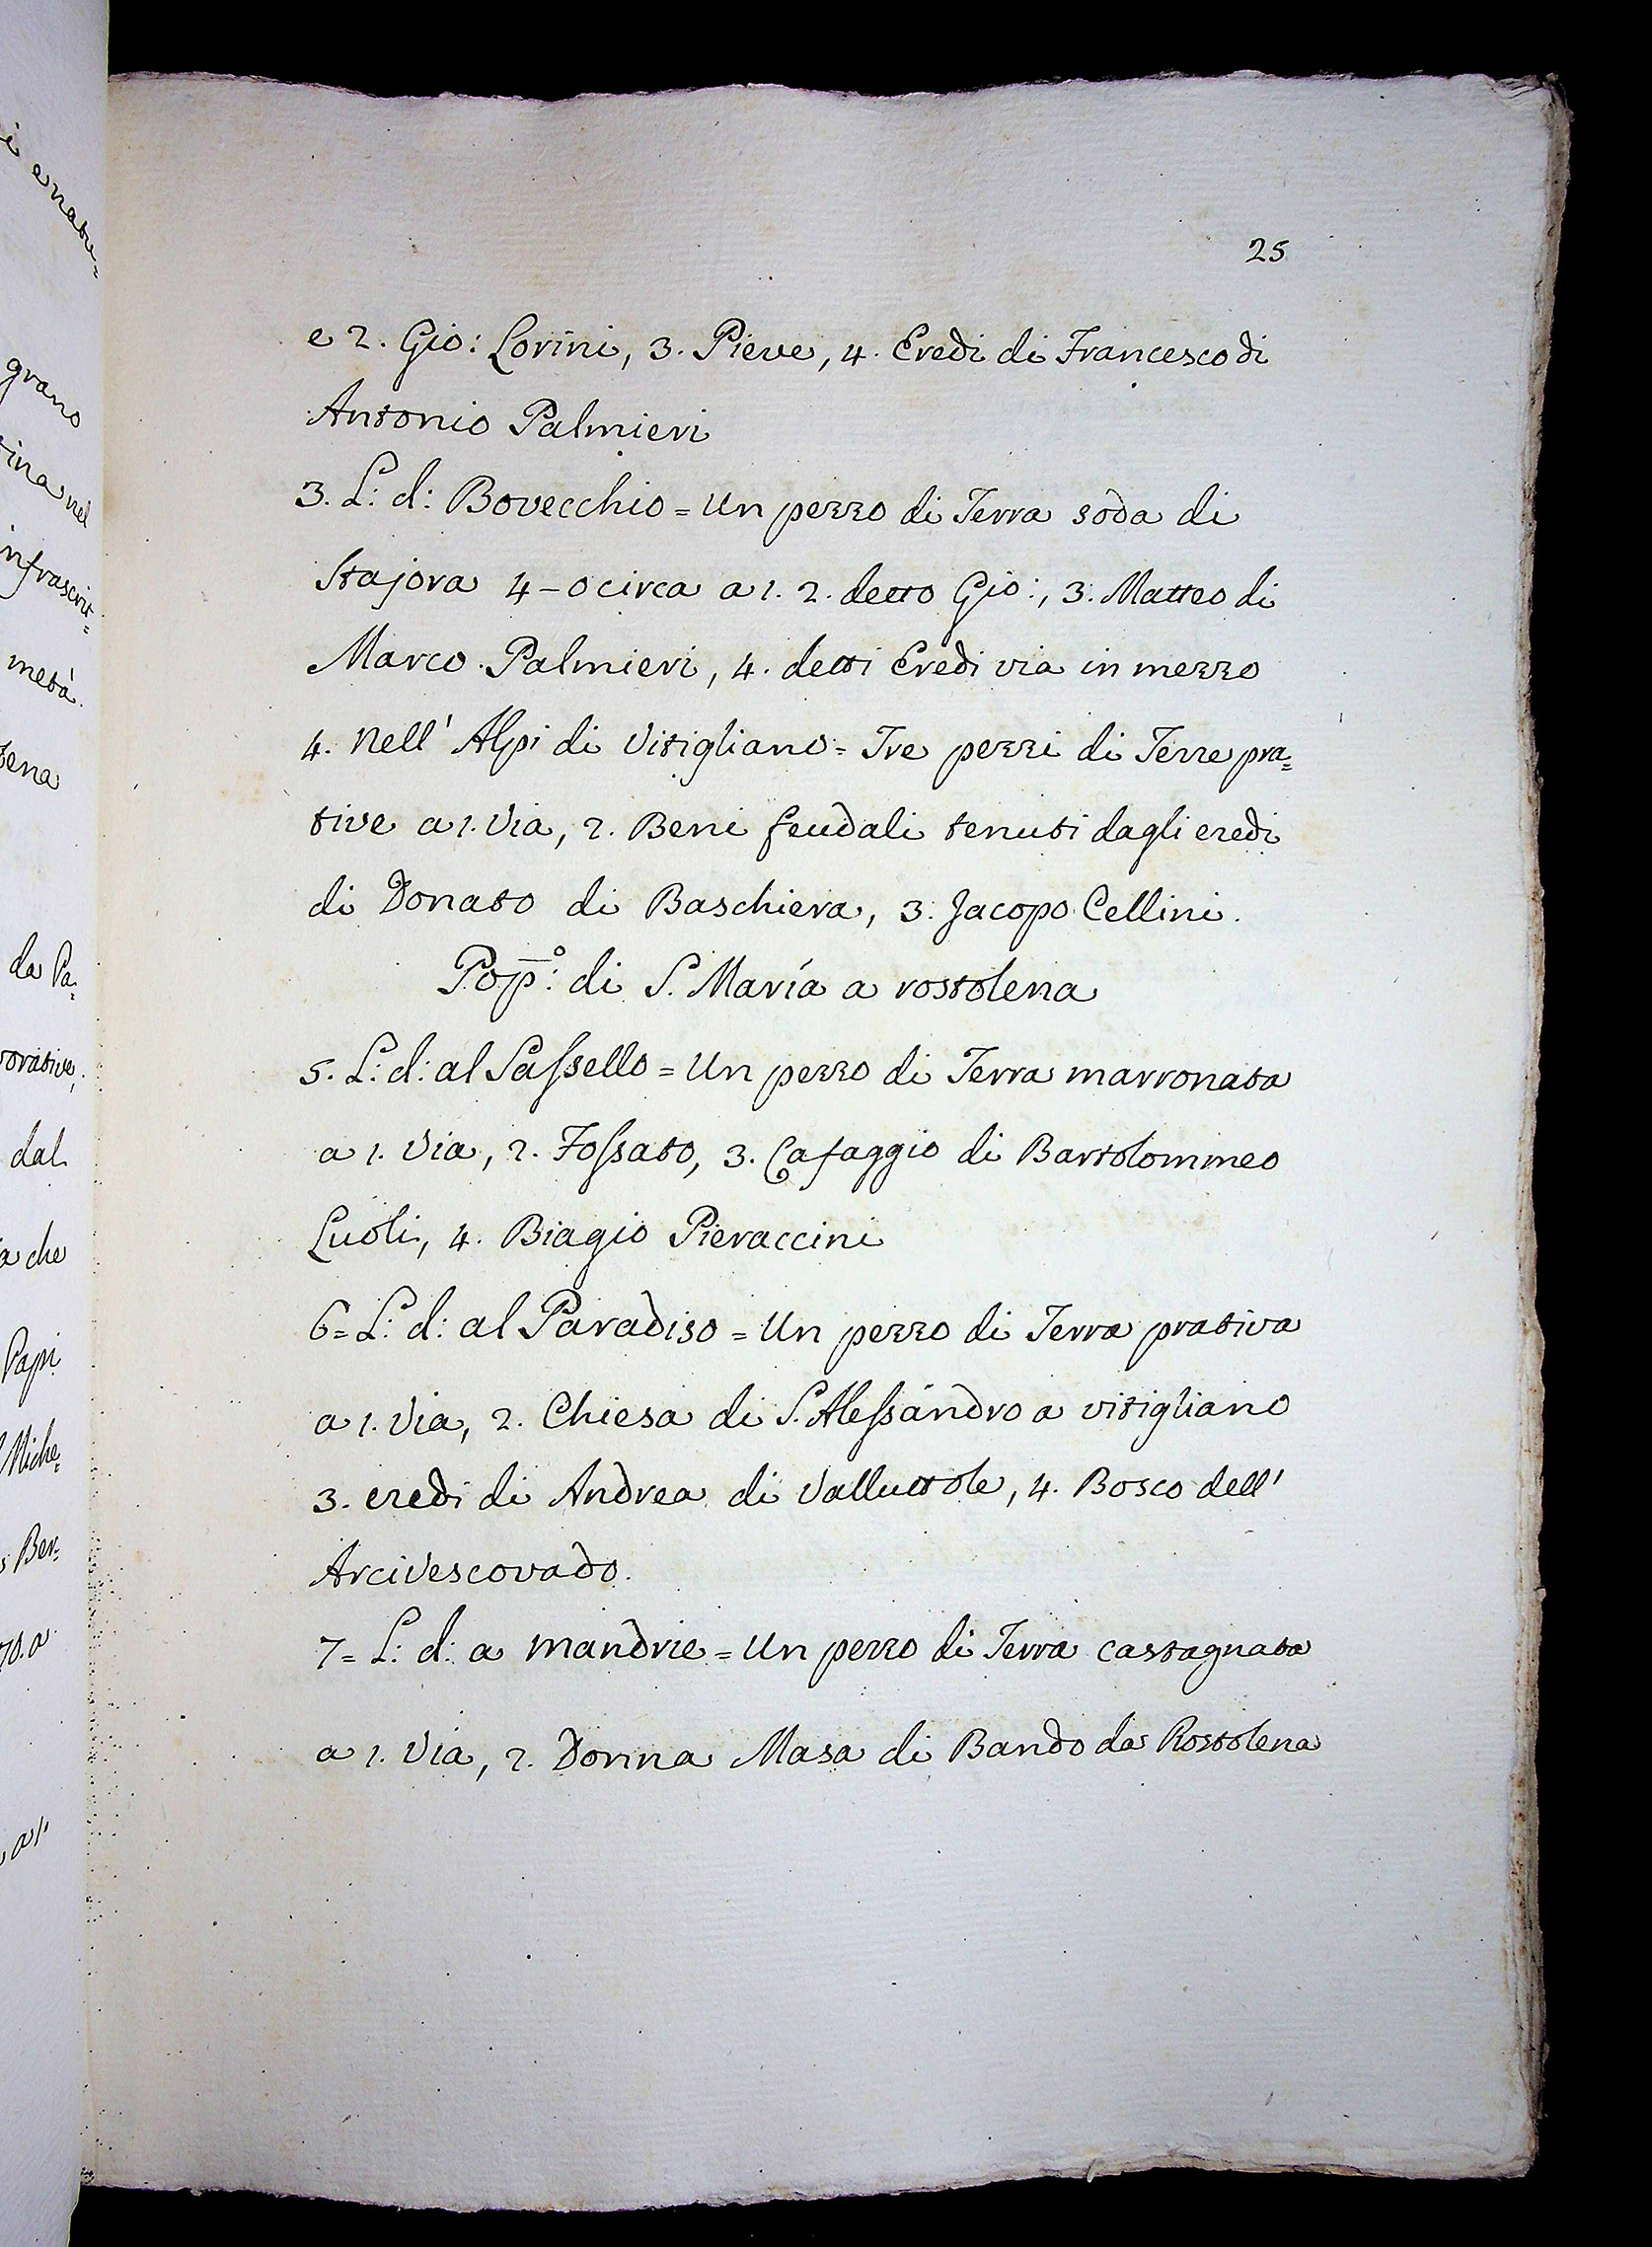 25
e 2. Gio: Lorini, 3. Pieve, 4. Eredi di Francesco di
Antonio Palmieri
3. L: d: Bovecchio = Un pezzo di Terra soda di
Stajora 4-0 circa a 1. 2. detto Gio:, 3. Matteo di
Marco Palmieri, 4. detti Eredi via in mezzo
4. Nell' Alpi di Vitigliano = Tre pezzi di Terre pra=
tive a 1. Via, 2. Beni feudali tenuti dagli eredi
di Donato di Baschiera, 3. Jacopo Cellini.
Pop̄º: di S. Maria a rostolena
5. L: d: al Sassello = Un pezzo di Terra marronata
a 1. Via, 2. Fossato, 3. Cafaggio di Bartolommeo
Luoli, 4. Biagio Pieraccini
6= L: d: al Paradiso = Un pezzo di Terra prativa
a 1. Via, 2. Chiesa di S. Alessandro a vitigliano
3. eredi di Andrea di Valluttole, 4. Bosco dell'
Arcivescovado.
7= L: d: a mandrie = Un pezzo di Terra castagnata
a 1. Via, 2. Donna Masa di Bando da Rostolena
grano
infrascrit=
metà
da Pa=
dal
che
Papi
Miche=
Ber=